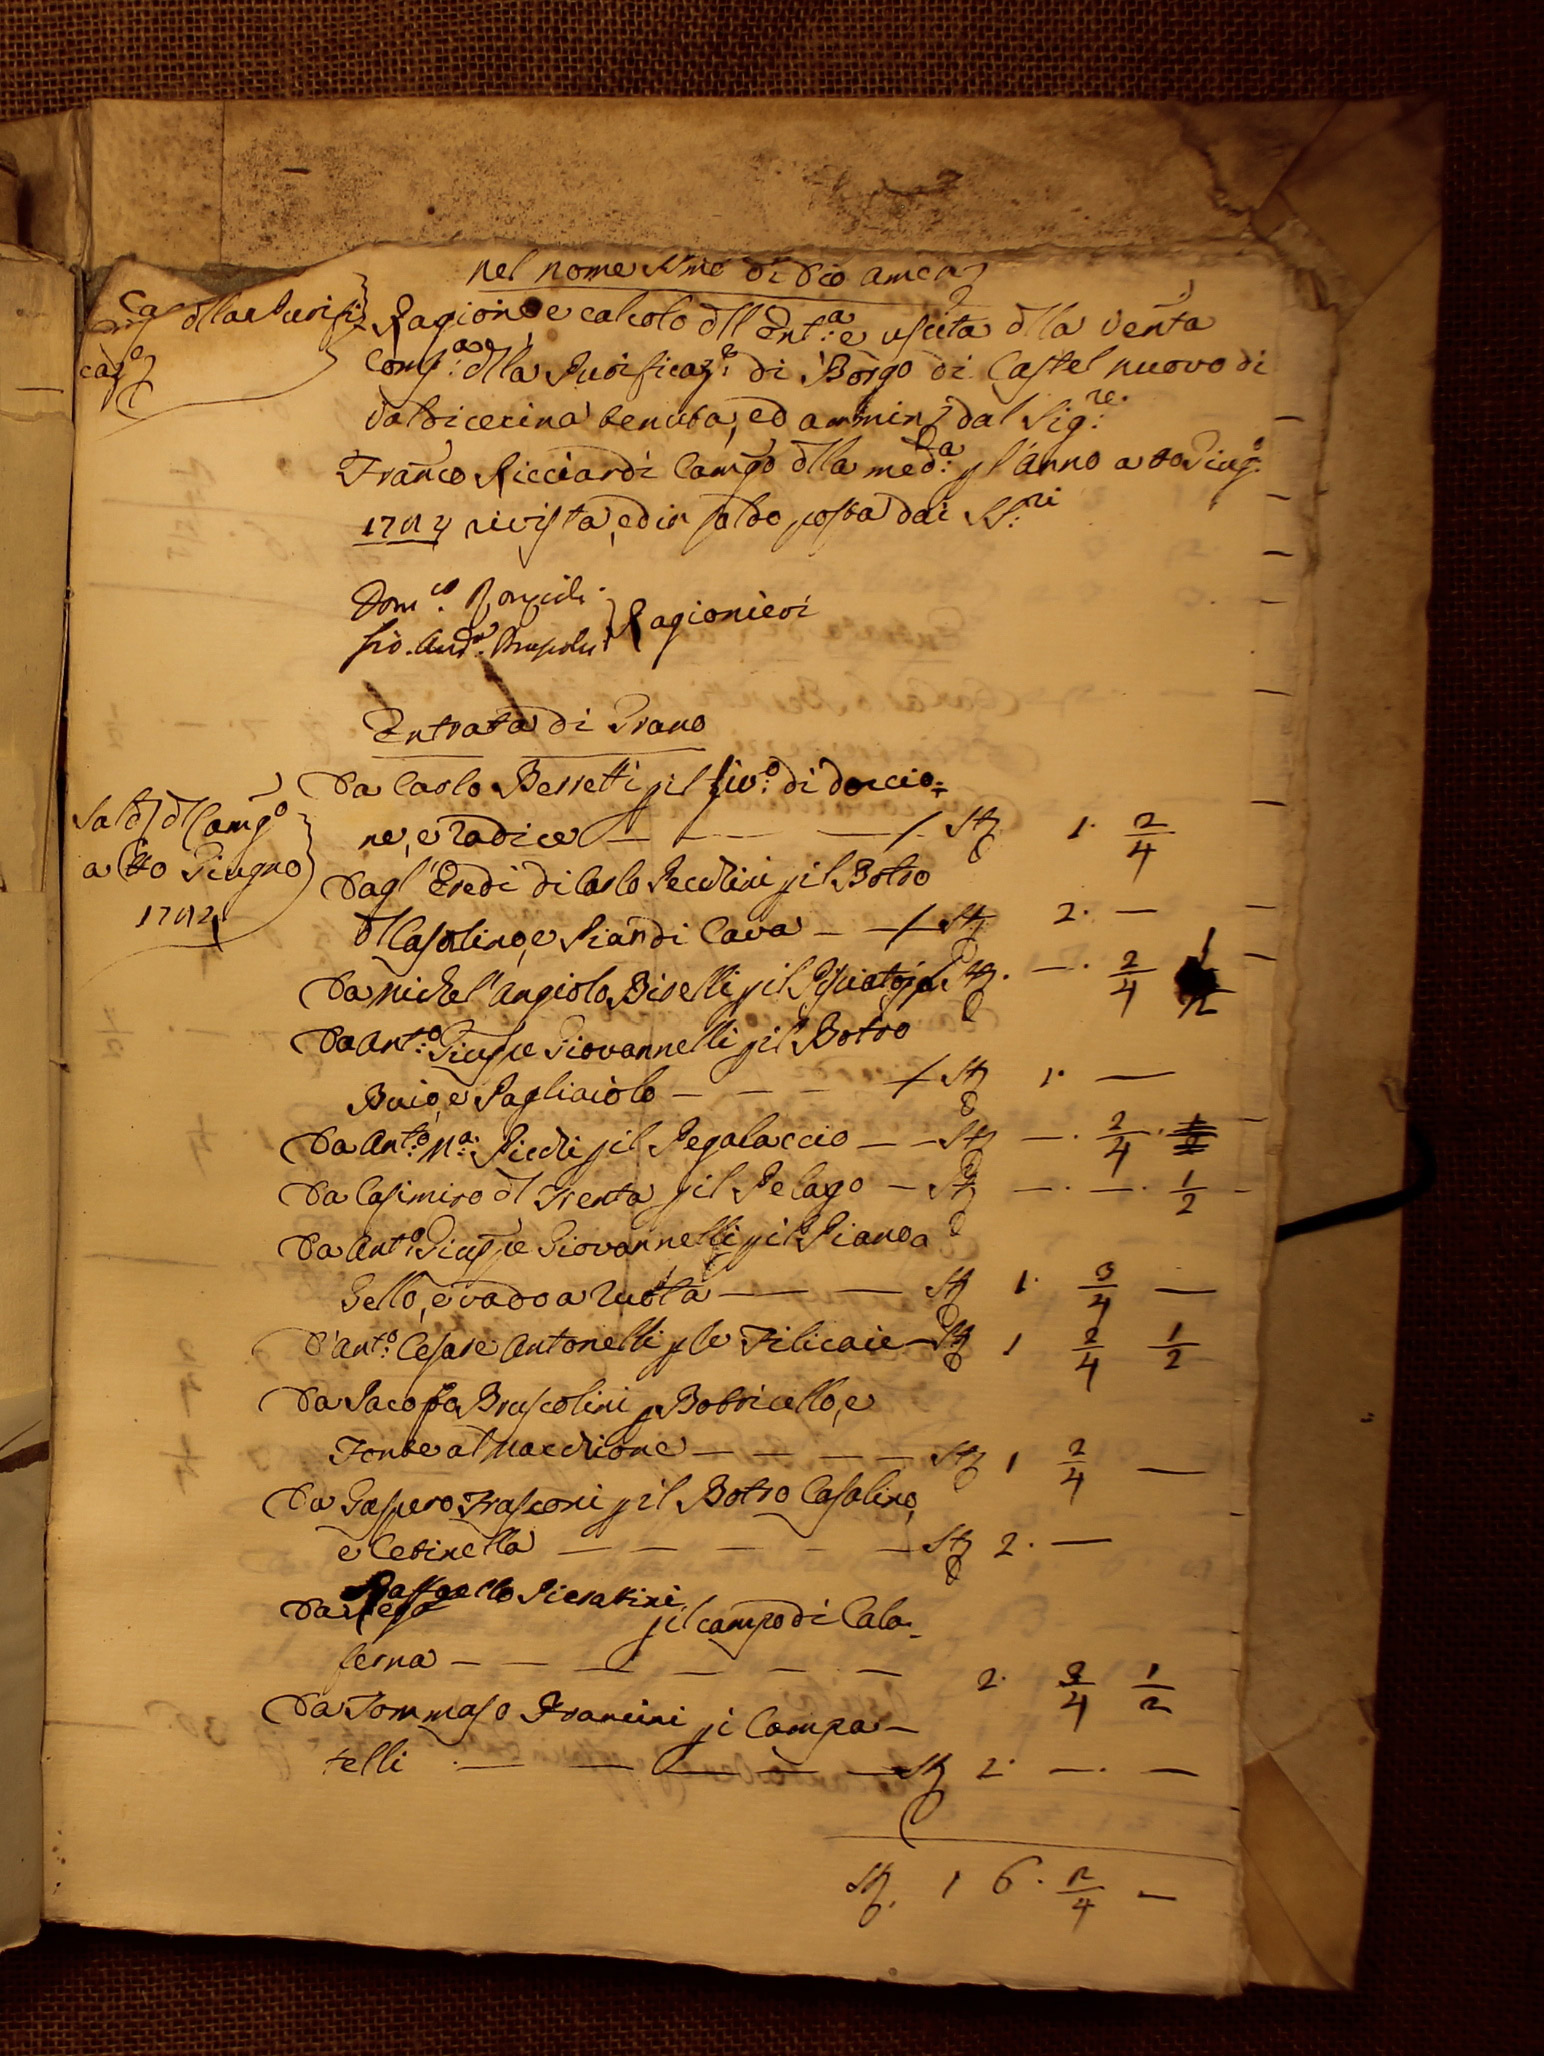 nel nome SSmo di Dio amen
Comp.a dlla Purifi
caz.e
Ragione e calcolo dll Ent.a e uscita dlla Venta
Comp.a dlla Purificaz.e di Borgo di Castel nuovo di
Valdicecina tenuta, ed ammin dal Sig.re
Franco Ricciardi Camgo dlla med.a pl'anno a tto Giug.o
rivista, ed in saldo posta dai SS.ri
Dom.co
Gio. And.a
Ragionieri
Entrata di Grano
Sald dl Camgo
a tto Giugno
Da Carlo Berretti pil livo: di doccio=
ne, e radice — — — — / St 1. 2/4
Dagl'Eredi di Carlo Pecchini pil Botro
dl Casalino, e Pian di Cava — — / St 2. —
Da Michel'Angiolo Biselli pil St. —. 2/4 1/2
Da Ant.o Giuspe Giovannelli pil Botro
Buio, e Pagliaiolo — — — — / St 1. —
Da Ant.o Ma: Picchi pil Pegolaccio — — St —. 2/4.
Da Casimiro dl Trenta pil Pelago — St —. —. 1/2
Da Ant.o Giuspe Giovannelli pil Piano a
Gello, e vado a Ruota — — — St 1. 3/4 —
D'Ant.o Cesare Antonelli ple Filicaie — St 1 2/4 1/2
Da Jacopo Bruscolini p Botricello, e
Fonte al Macchione — — — — St 1 2/4 —
Da Gaspero Frasconi pil Botro Casalino,
e Cetinella — — — — — St 2. —
Raffaello Pierattini
Da pil campo di Cala=
ferna — — — — — — 2. 3/4 1/2
Da Tommaso Francini pi Campa=
telli — — — — — St 2. —. —
St. 16. 2/4 —